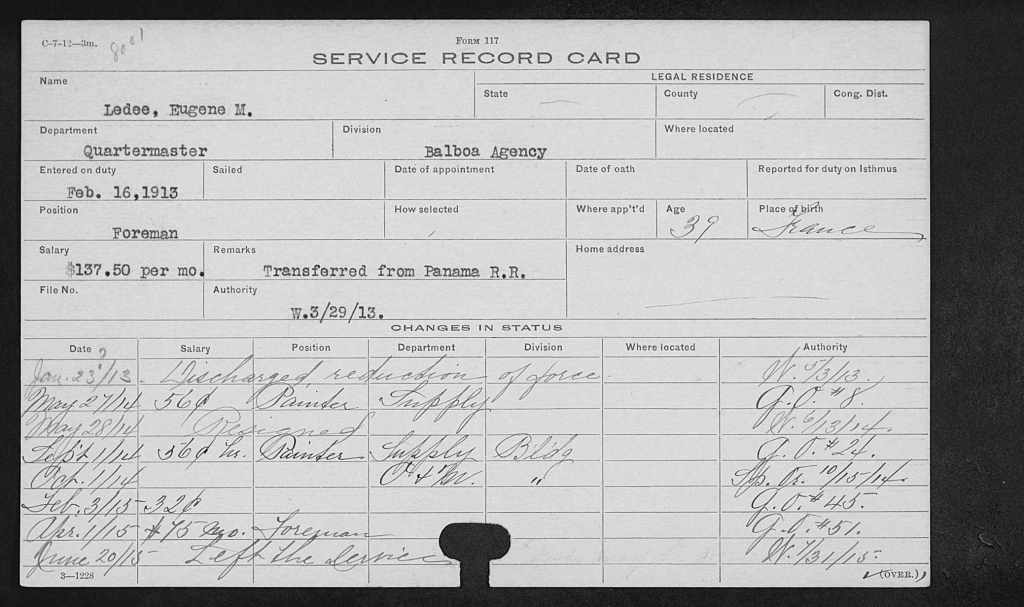 C-7-12—3m.
Form 117
SERVICE RECORD CARD
Name
LEGAL RESIDENCE
State County Cong. Dist.
Ledee, Eugene M.
Department Division Where located
Quartermaster Balboa Agency
Entered on duty Sailed Date of appointment Date of oath Reported for duty on Isthmus
Feb. 16,1913
Position How selected Where app't'd Age Place of birth
Foreman 39 France
Salary Remarks Home address
$137.50 per mo. Transferred from Panama R.R.
File No. Authority
W.3/29/13.
CHANGES IN STATUS
Date Salary Position Department Division Where located Authority
Jan. 23/13. Discharged reduction of force. W. 5/3/13.
May 27/14 56¢ Painter Supply G.O. #8.
May 28/14 Resigned W. 6/13/14.
Sept 1/14 56¢ hr. Painter Supply Bldg G.O. #24.
Oct. 1/14 " 10/15/14.
Feb. 3/15 32¢ G.O. #45.
Apr. 1/15 $75 mo. Foreman G.O. #51.
June 20/15 Left the Service W. 7/31/15.
3—1228
(OVER.)